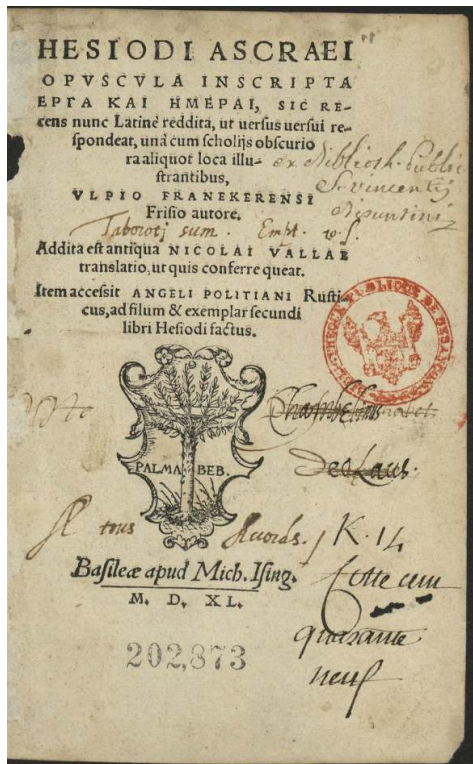 HESIODI ASCRAEI
OPVSCVLA INSCRIPTA
ΕΡΓΑ ΚΑΙ ΗΜΕΡΑΙ, SIC RE-
cens nunc Latinè reddita, ut uersus uersui re-
spondeat, unà cum scholijs obscurio
ra aliquot loca illu-
strantibus,
VLPIO FRANEKERENSI
Frisio autore.
ex Biblioth. Public
S. vincentij
Bisuntini
Taborotj sum. Empt.
Addita est antiqua NICOLAI VALLAE
translatio, ut quis conferre queat.
Item accessit ANGELI POLITIANI Rusti-
cus, ad filum & exemplar secundi
libri Hesiodi factus.
BIBLIOTHEQUE PUBLIQUE DE BESANCON
PALMA BEB.
A tous Accords. K. 14
Basileæ apud Mich. Ising.
M. D. XL.
Cotte cen
quarante
neuf
202,873